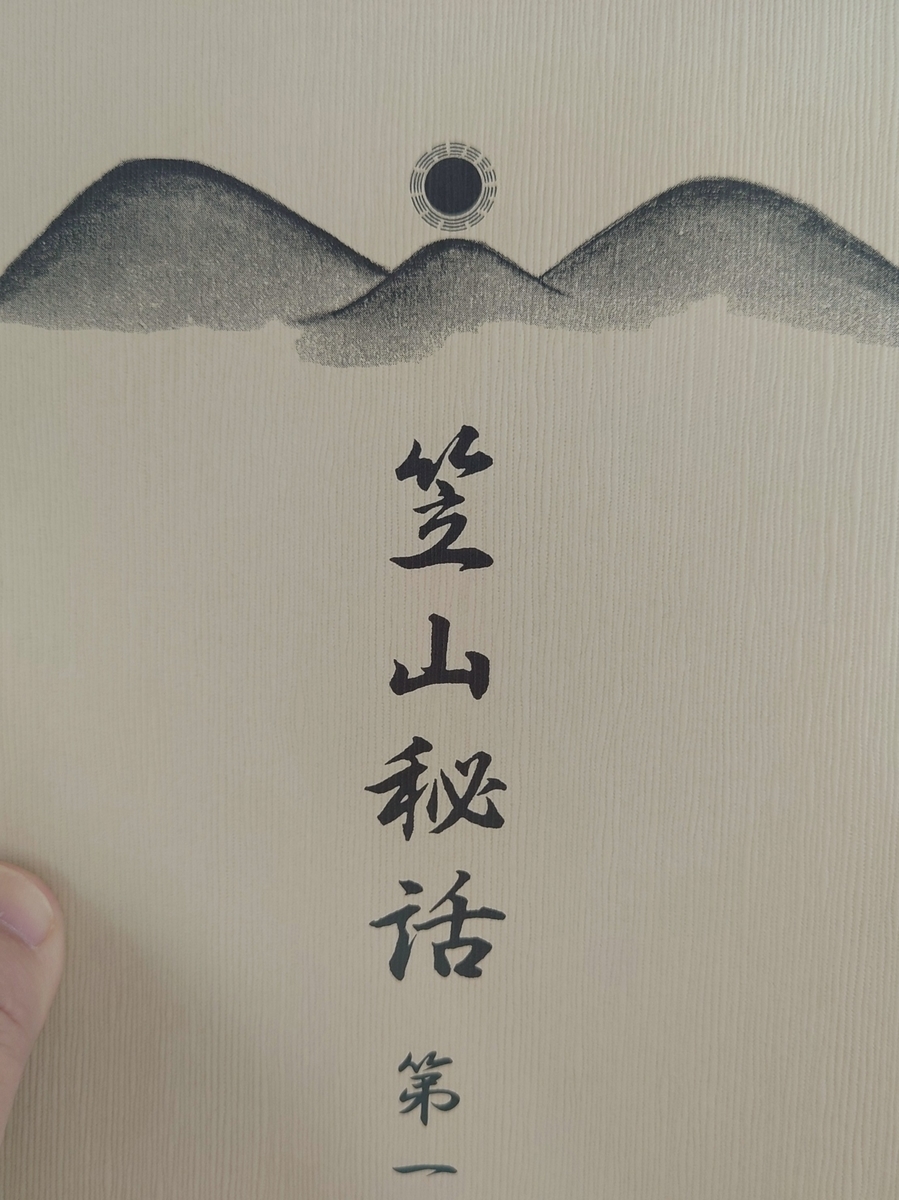 笠山秘話
第一